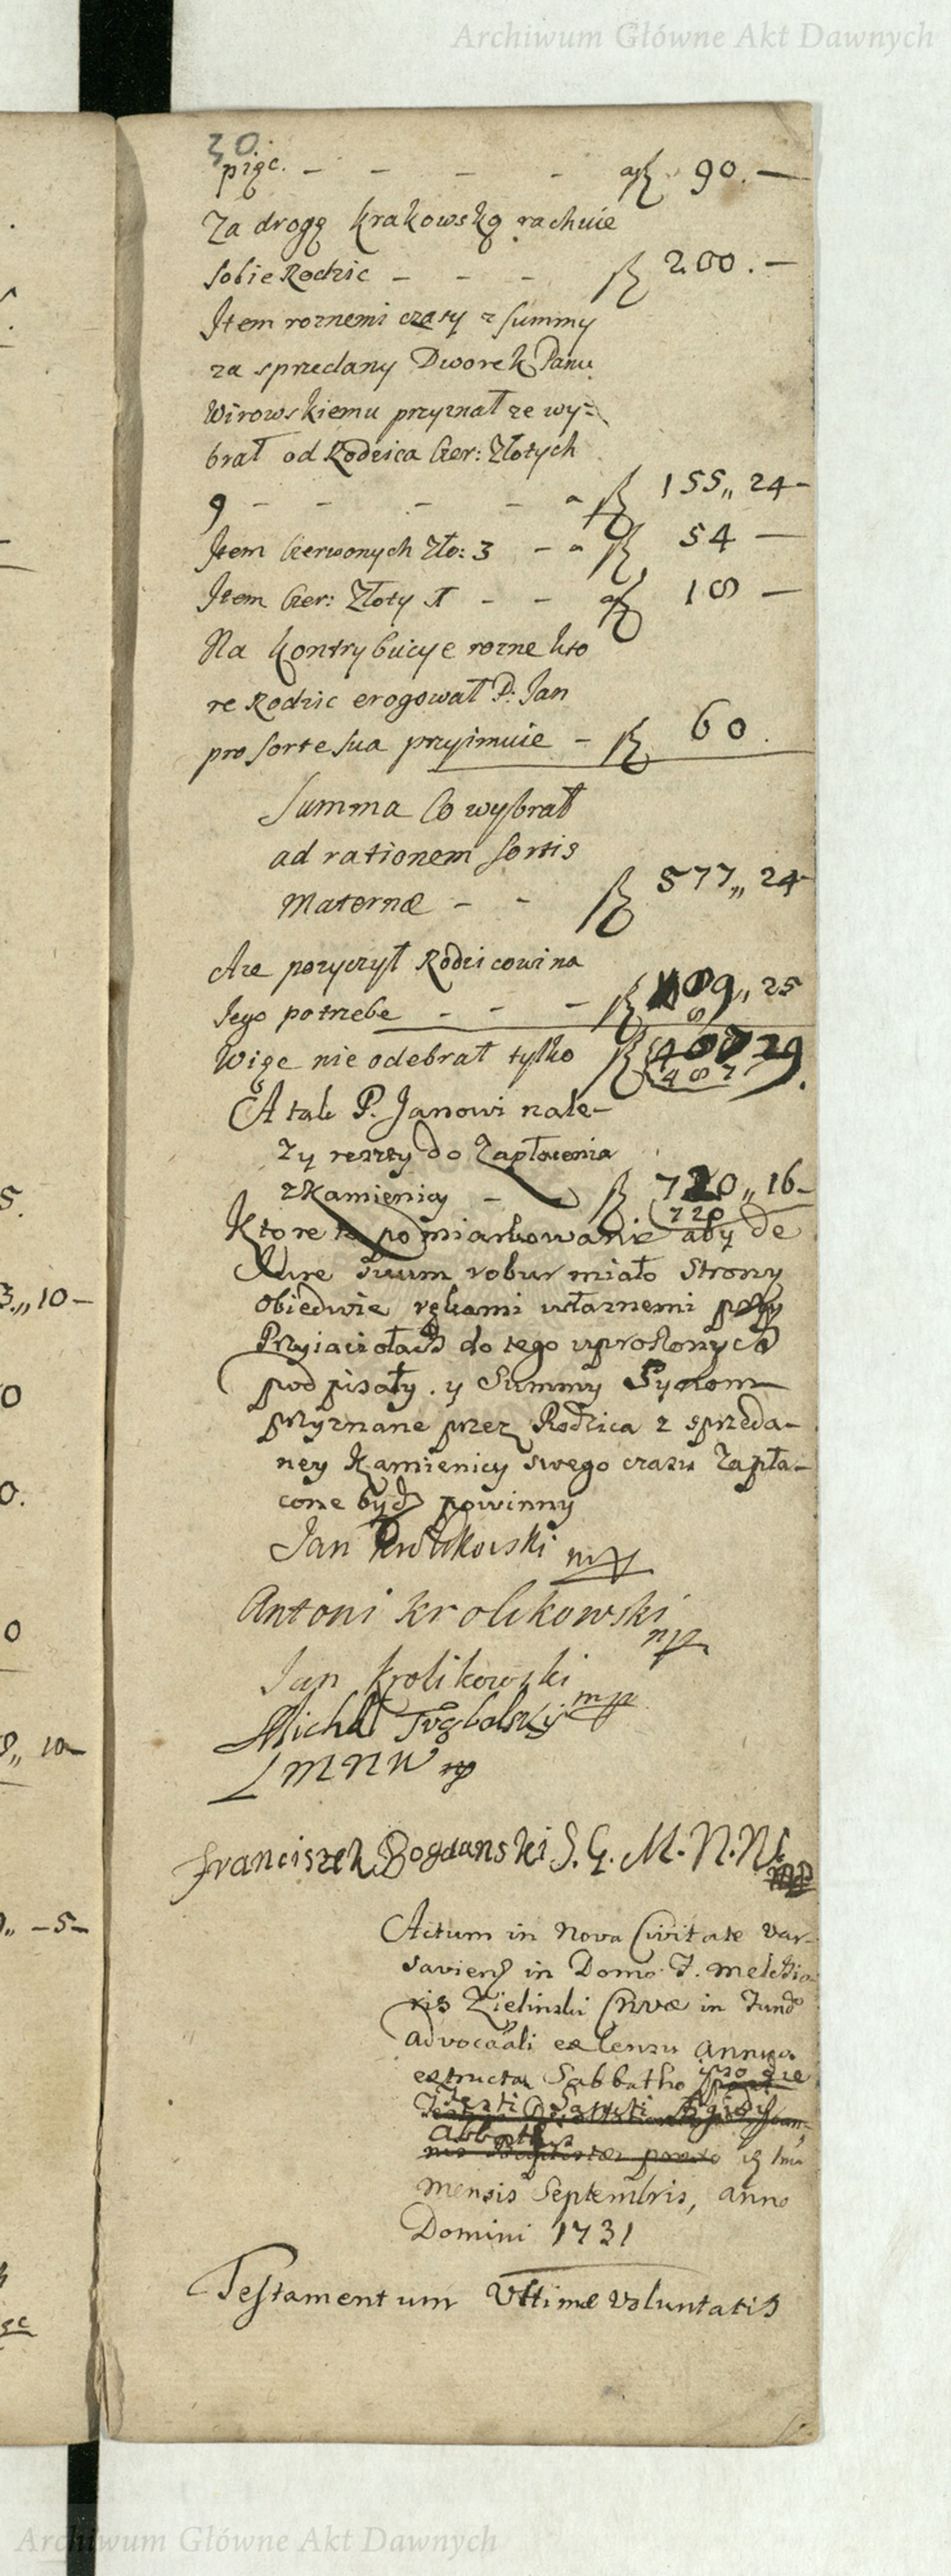 Archiwum Główne Akt Dawnych
30.
pięc. - - - - 90.—
Za drogę krakowską rachuie
sobie Rodzic - - - 200.—
Item roznemi czasy z summy
za sprzedany Dworek Panu
Wirowskiemu przyznał ze wy=
brał od Rodzica Czer: Złotych
9 - - - - 155,, 24-
Item Czerwonych Zło: 3 - - 54 —
Item Czer: Złoty 1 - - 18 —
Na kontrybucye rozne kto
re Rodzic erogował P: Jan
pro sorte sua przyimuie - 60.
Summa Co wybrał
ad rationem sortis
Maternæ - - 577,, 24-
Aze pozyczył Rodzicowi na
Jego potrzebe - - - 89,, 25
Więc nie odebrał tylko 487 29.
487
A tak P. Janowi nale-
zy reszty do Zapłacenia
z Kamienicy - 720,, 16-
720
Ktore to pomiarkowanie aby de
Jure suum robur miało Strony
obiedwie rękami własnemi przy
Przyiaciołach do tego uproszonych
pod pisały. y Summy Synom
przyznane przez Rodzica z sprzeda-
ney Kamienicy swego czasu Zapła-
cone bydź powinny
Jan Krolikowski mp
Antoni Krolikowski
mp
Jan Krolikowski mp
Michał
L M N W mp
Franciszek Bogdanski S. G. M. N. W.
mp
Actum in Nova Civitate Var-
saviens in Domo J. Melchio-
ris Zielinski in Fundo
advocaali ex Censu annuo
extructa Sabbatho ipso die
Festi Sancti Ægidij
Abbatis
mensis Septembris, anno
Domini 1731
Testamentum Ultimæ Voluntatis
5.
3.,, 10-
0
0.
0
,, 10-
,, -5-
Archiwum Główne Akt Dawnych